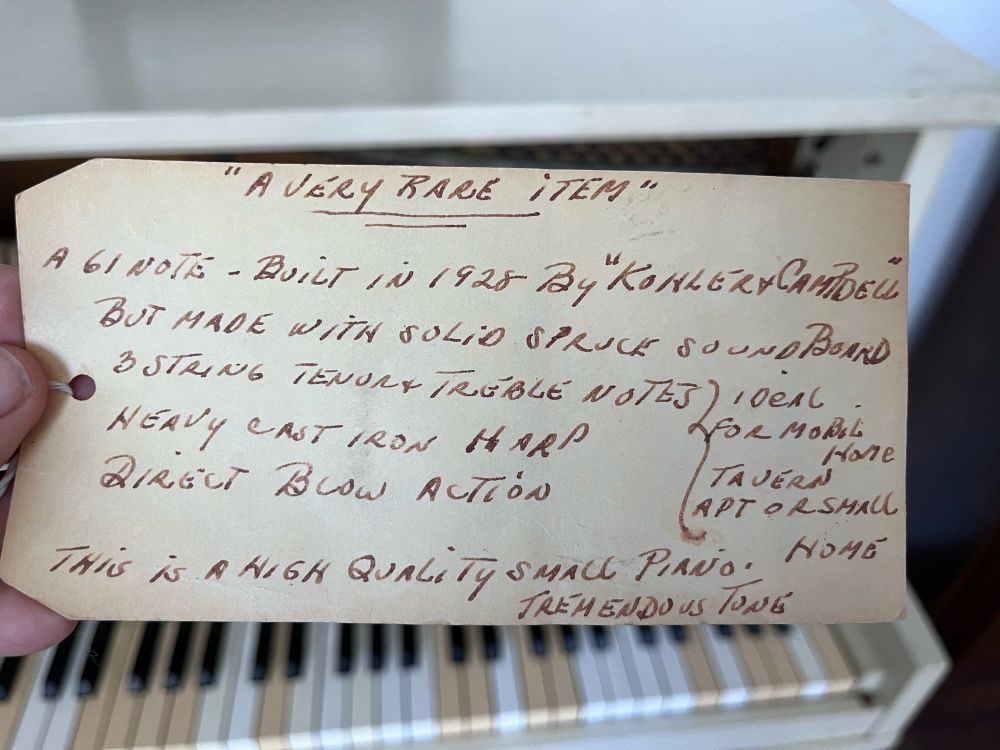 "A VERY RARE ITEM"
A 61 NOTE - BUILT IN 1928 BY "KOHLER & CAMPBELL"
BUT MADE WITH SOLID SPRUCE SOUND BOARD
3 STRING TENOR & TREBLE NOTES } IDEAL
HEAVY CAST IRON HARP FOR MOBIL
HOME
DIRECT BLOW ACTION TAVERN
APT OR SMALL
HOME
THIS IS A HIGH QUALITY SMALL PIANO.
TREMENDOUS TONE